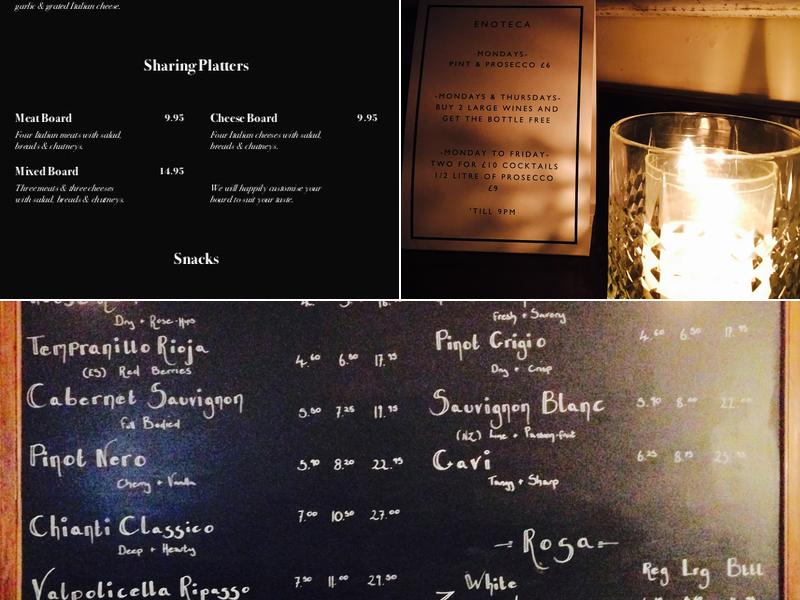 garlic & grated Italian cheese.
Sharing Platters
Meat Board 9.95
Four Italian meats with salad,
breads & chutneys.
Cheese Board 9.95
Four Italian cheeses with salad,
breads & chutneys.
Mixed Board 14.95
Three meats & three cheeses
with salad, breads & chutneys.
We will happily customise your
board to suit your taste.
Snacks
ENOTECA
-MONDAYS-
PINT & PROSECCO £6
-MONDAYS & THURSDAYS-
BUY 2 LARGE WINES AND
GET THE BOTTLE FREE
-MONDAY TO FRIDAY-
TWO FOR £10 COCKTAILS
1/2 LITRE OF PROSECCO
£9
'TILL 9PM
Dry + Rose-Hips
Tempranillo Rioja 4.60 6.50 17.95
(ES) Red Berries
Cabernet Sauvignon 5.50 7.25 19.95
Full Bodied
Pinot Nero 5.90 8.20 22.95
Cherry + Vanilla
Chianti Classico 7.00 10.50 27.00
Deep + Hearty
Valpolicella Ripasso 7.50 11.00 29.50
Fresh + Savory
Pinot Grigio 4.60 6.50 17.95
Dry + Crisp
Sauvignon Blanc 5.90 8.00 22.00
(NZ) Lime + Passion-fruit
Gavi 6.25 8.75
Tangy + Sharp
Rosa
Reg Lrg Btl
White